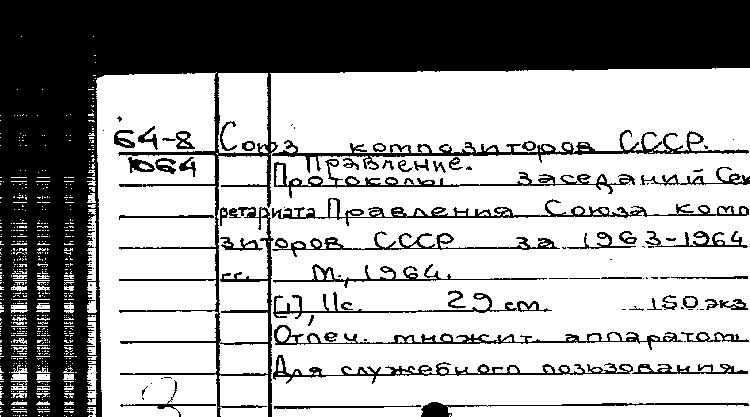 64-8 Союз композиторов СССР.
1064 Правление.
Протоколы заседаний Сек
ретариата Правления Союза комп
зиторов СССР за 1963-1964
гг. М., 1964.
[1], 11с. 29 см. 150 экз
Отпеч. множит. аппаратом
Для служебного пользования.
3